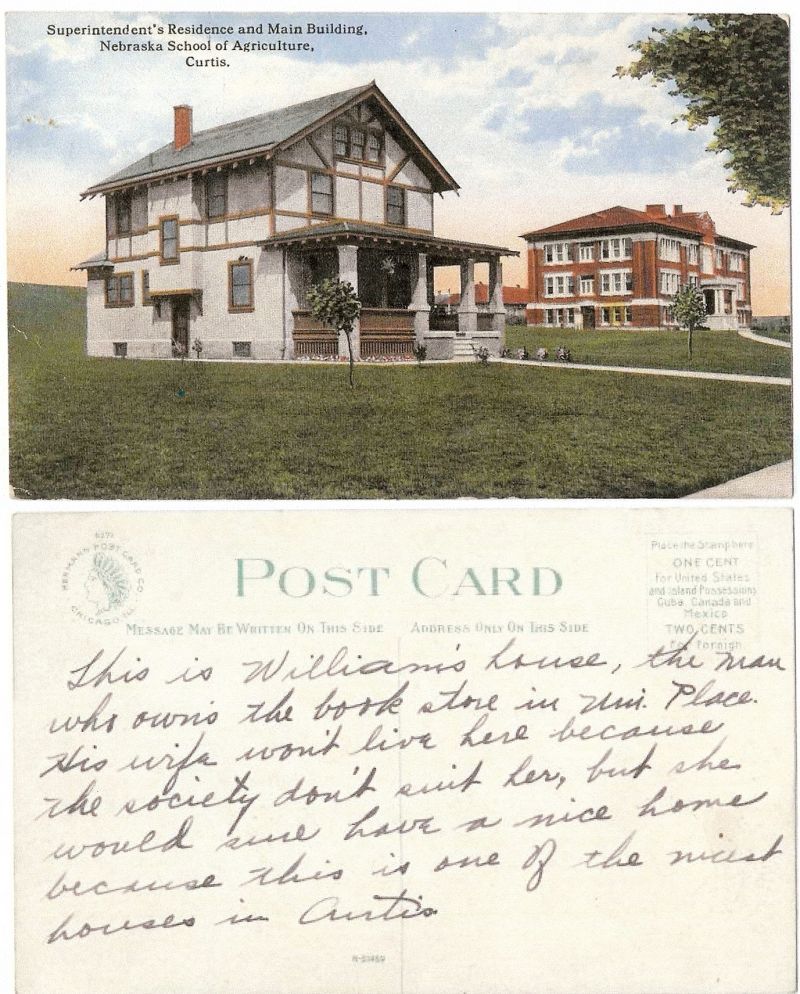 Superintendent's Residence and Main Building,
Nebraska School of Agriculture,
Curtis.
HERMAN POST CARD CO.
CHICAGO, ILL.
POST CARD
MESSAGE MAY BE WRITTEN ON THIS SIDE
ADDRESS ONLY ON THIS SIDE
Place the Stamp here
ONE CENT
for United States
and Island Possessions
Cuba, Canada and
Mexico
TWO CENTS
for Foreign
This is William's house, the man
who owns the book store in Uni. Place.
His wife won't live here because
the society don't suit her, but she
would sure have a nice home
because this is one of the nicest
houses in Curtis